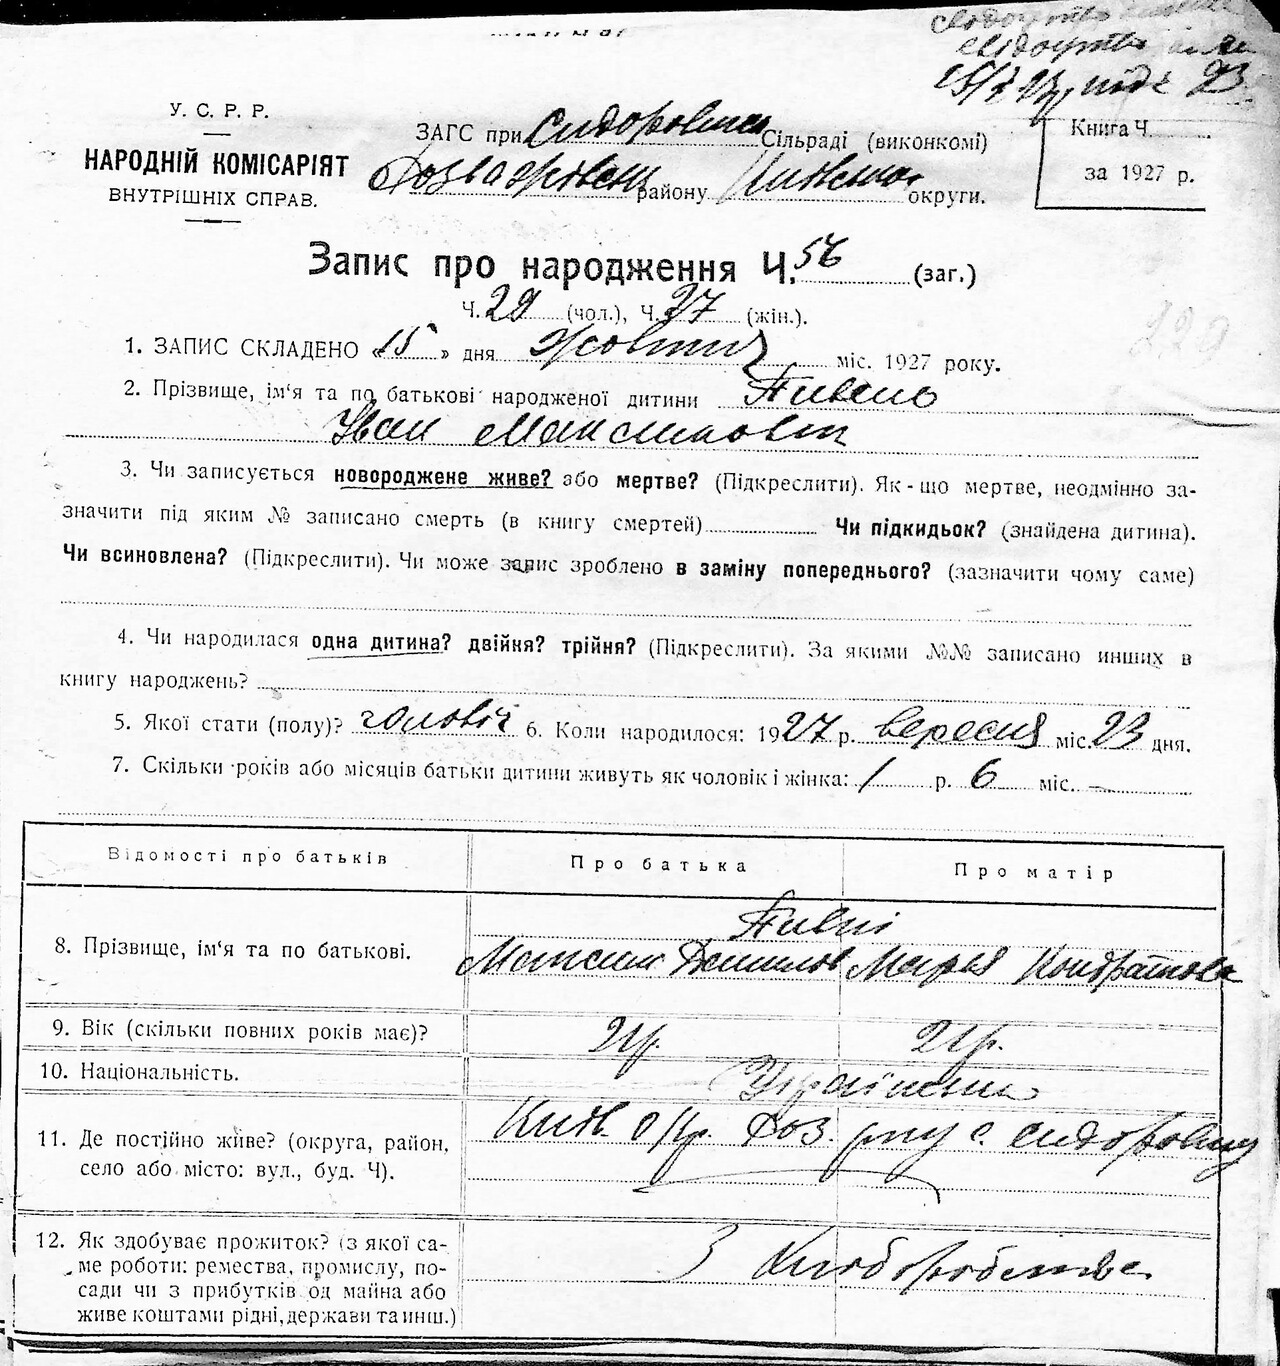 свідоцтво
У. С. Р. Р.
НАРОДНІЙ КОМІСАРІЯТ
ВНУТРІШНІХ СПРАВ.
ЗАГС при Сидоровськ Сільраді (виконкомі)
Розважівськ району Київської округи.
Книга Ч.
за 1927 р.
Запис про народження Ч. 56 (заг.)
Ч. 29 (чол.), Ч. 27 (жін.).
1. ЗАПИС СКЛАДЕНО « 15 » дня Жовтня міс. 1927 року.
2. Прізвище, ім‘я та по батькові народженої дитини Півень
Іван Максимович
3. Чи записується новороджене живе? або мертве? (Підкреслити). Як-що мертве, неодмінно за-
значити під яким № записано смерть (в книгу смертей) Чи підкидьок? (знайдена дитина).
Чи всиновлена? (Підкреслити). Чи може запис зроблено в заміну попереднього? (зазначити чому саме)
4. Чи народилася одна дитина? двійня? трійня? (Підкреслити). За якими №№ записано инших в
книгу народжень?
5. Якої стати (полу)? чоловіч 6. Коли народилося: 1927 р. вересня міс. 23 дня.
7. Скільки років або місяців батьки дитини живуть як чоловік і жінка: 1 р. 6 міс. –
Відомості про батьків Про батька Про матір
8. Прізвище, ім‘я та по батькові. Півні
Максим Данилов Марья Кондратова
9. Вік (скільки повних років має)? 21р. 21р.
10. Національність. Українська
11. Де постійно живе? (округа, район, Київ. Окр. Роз. р-ну с. Сидоровичу
село або місто: вул., буд. Ч).
12. Як здобуває прожиток? (з якої са- З Хліборобства
ме роботи: ремества, промислу, по-
сади чи з прибутків од майна або
живе коштами рідні, держави та инш.)